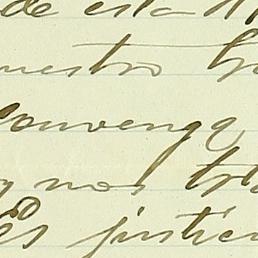 de esta
nuestro
Convenga
y nos
es justici